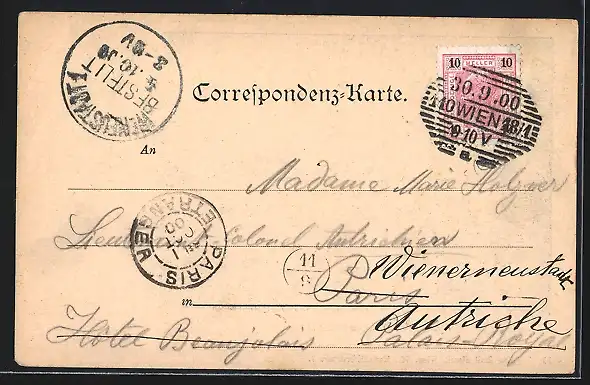 WR. NEUSTADT 1
BESTELLT
3.10.00
8-9V
10 HELLER 10
30.9.00
1/1 WIEN 18/1
9-10V
Correspondenz-Karte.
An
Madame Marie Holzner
Lieutenant Colonel Autrichien
PARIS ETRANGER
1 OCT 00
11
9
Wienerneustadt
in Paris
Autriche
Hôtel Beaujolais Palais-Royal